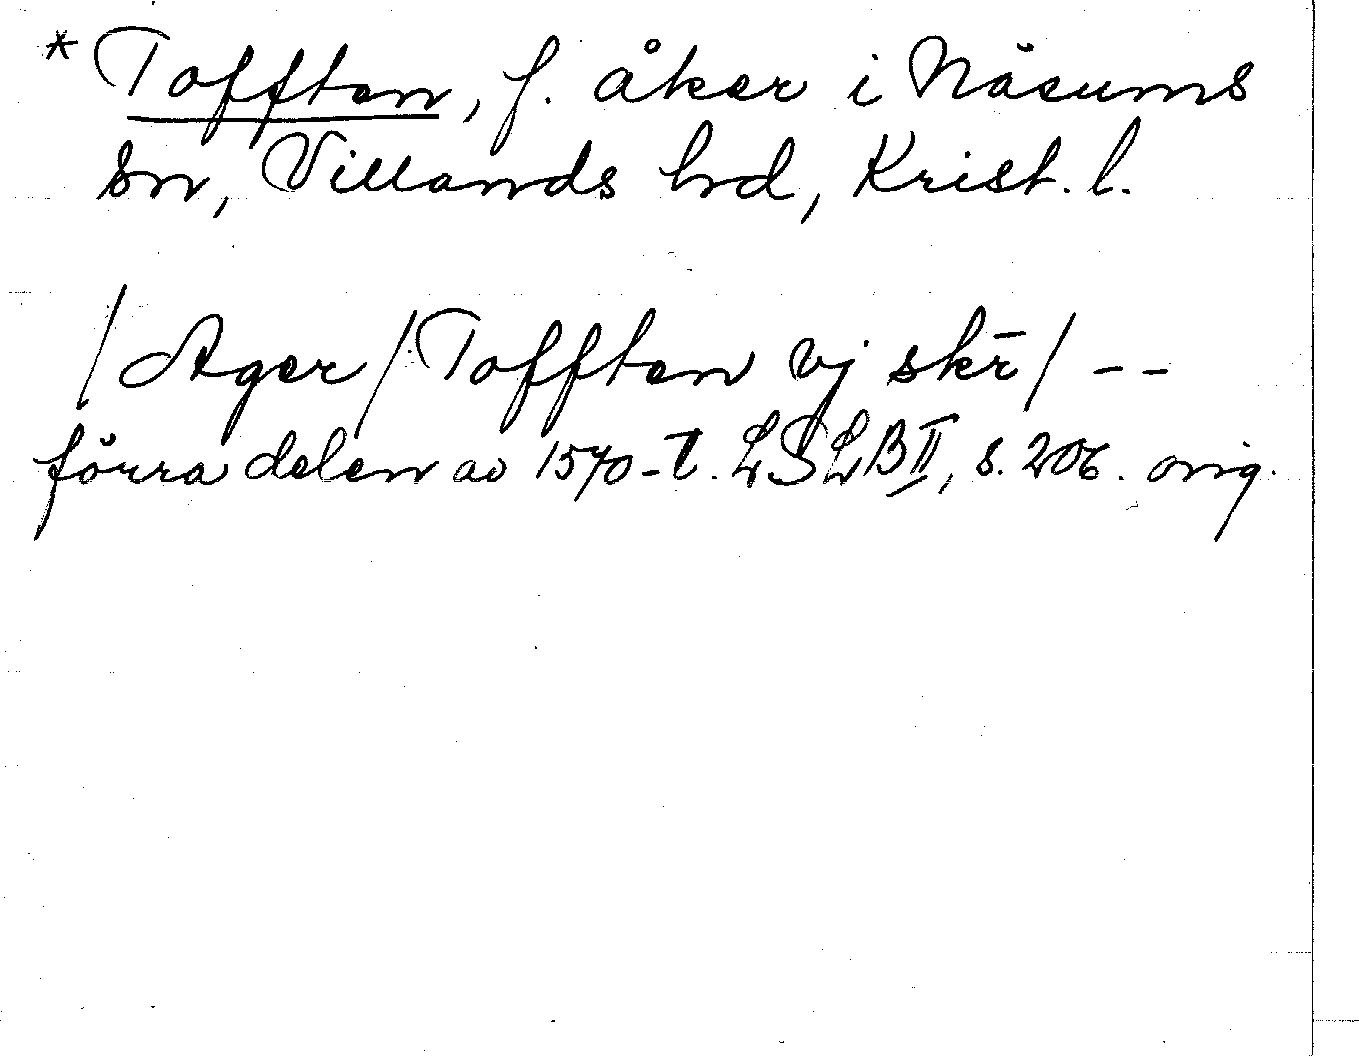 * Tofften, f. åker i Näsums
sn, Villands hd, Krist. l.
/ Ager / Tofften vj skr̄ / --
förra delen av 1570-t. LSLB II, s. 206. orig.